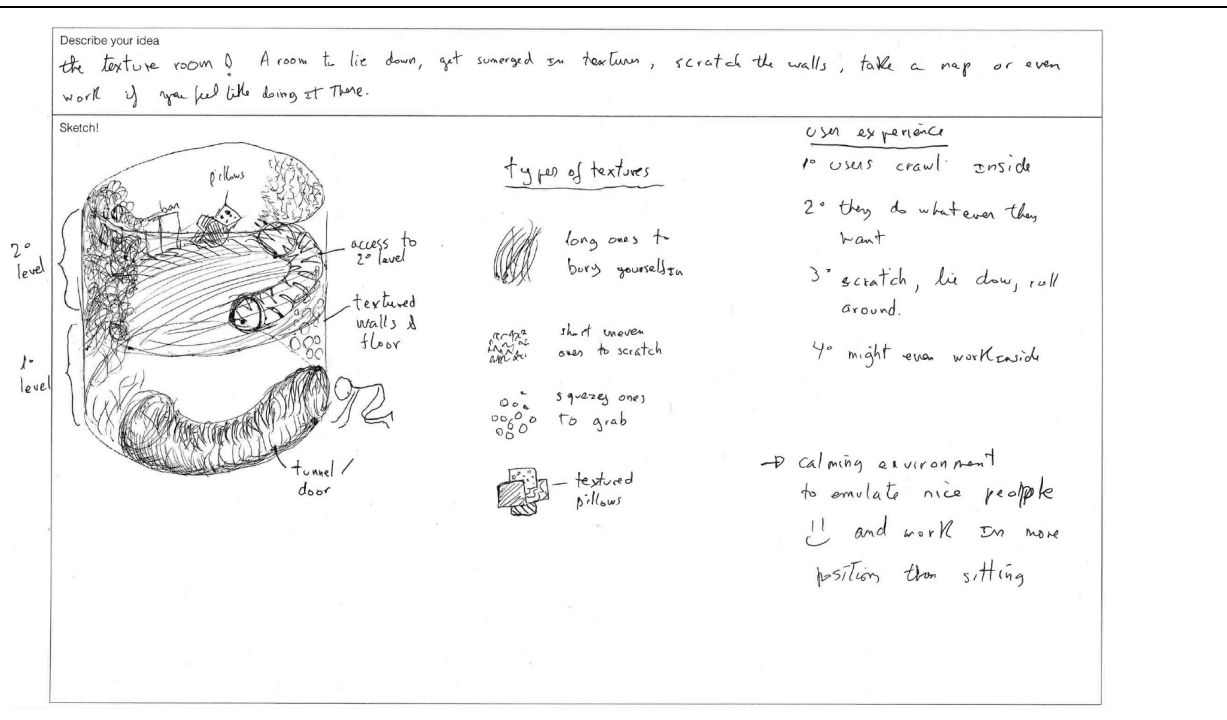 Describe your idea
the texture room! A room to lie down, get sumerged in textures, scratch the walls, take a nap or even
work if you feel like doing it there.
Sketch!
pillows
bar
2° level
1° level
access to
2° level
textured
walls &
floor
tunnel
door
types of textures
long ones to
bury yourself in
short uneven
ones to scratch
squezey ones
to grab
textured
pillows
user experience
1° users crawl inside
2° they do whatever they
want
3° scratch, lie dow, roll
around.
4° might even work inside
→ calming environment
to emulate nice people
and work in more
position than sitting